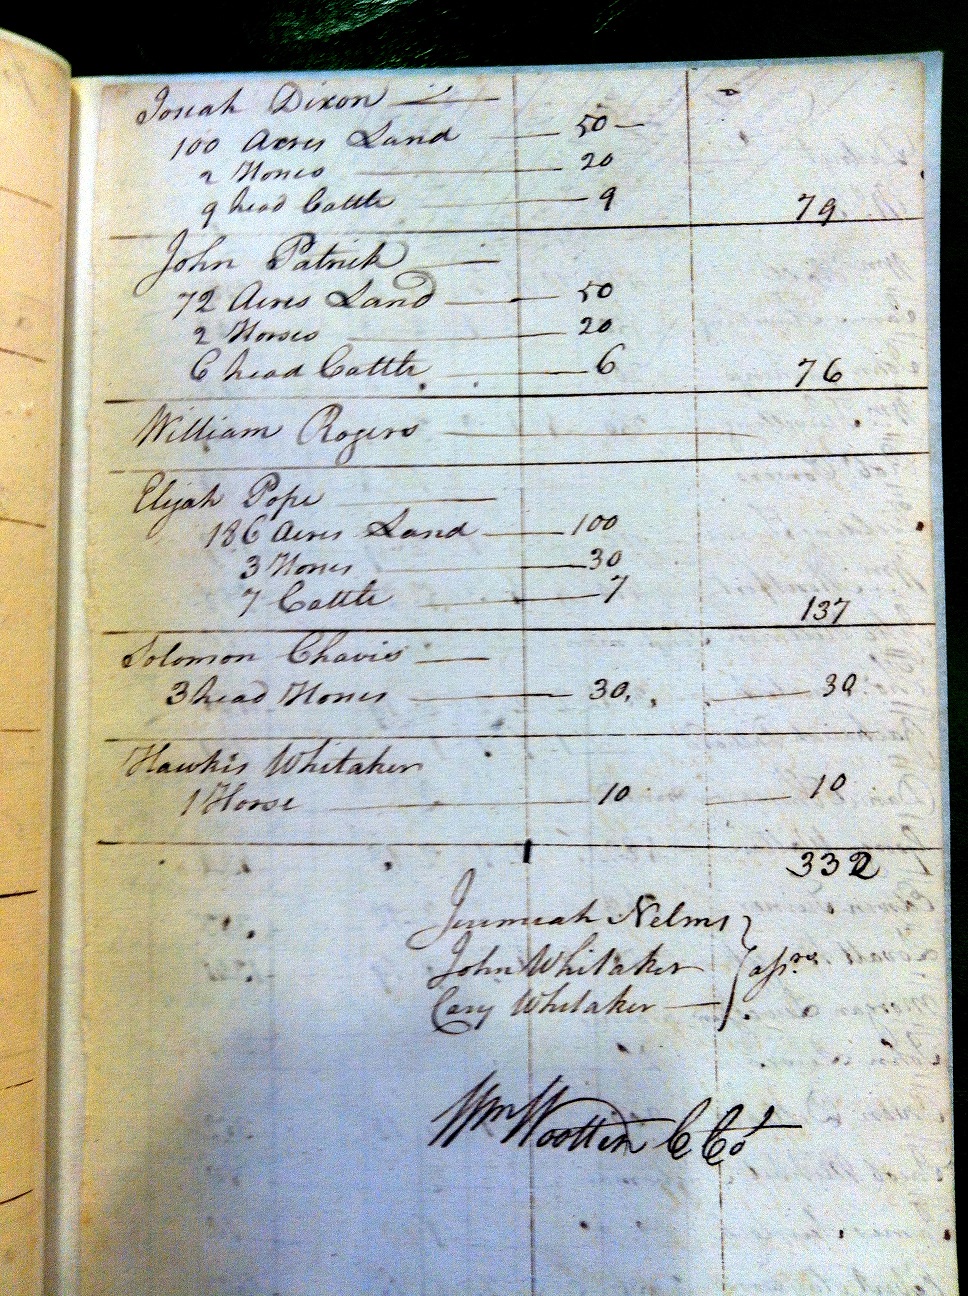 Josiah Dixon
100 Acres Land 50
2 Horses 20
9 head Cattle 9 79
John Patrick
72 Acres Land 50
2 Horses 20
6 head Cattle 6 76
William Rogers
Elijah Pope
186 Acres Land 100
3 Horses 30
7 Cattle 7 137
Solomon Chavis
3 head Horses 30 30
Hawkis Whitaker
1 Horse 10 10
332
Jeremiah Nelms
John Whitaker assrs
Cary Whitaker
Wm Wootten C Ct